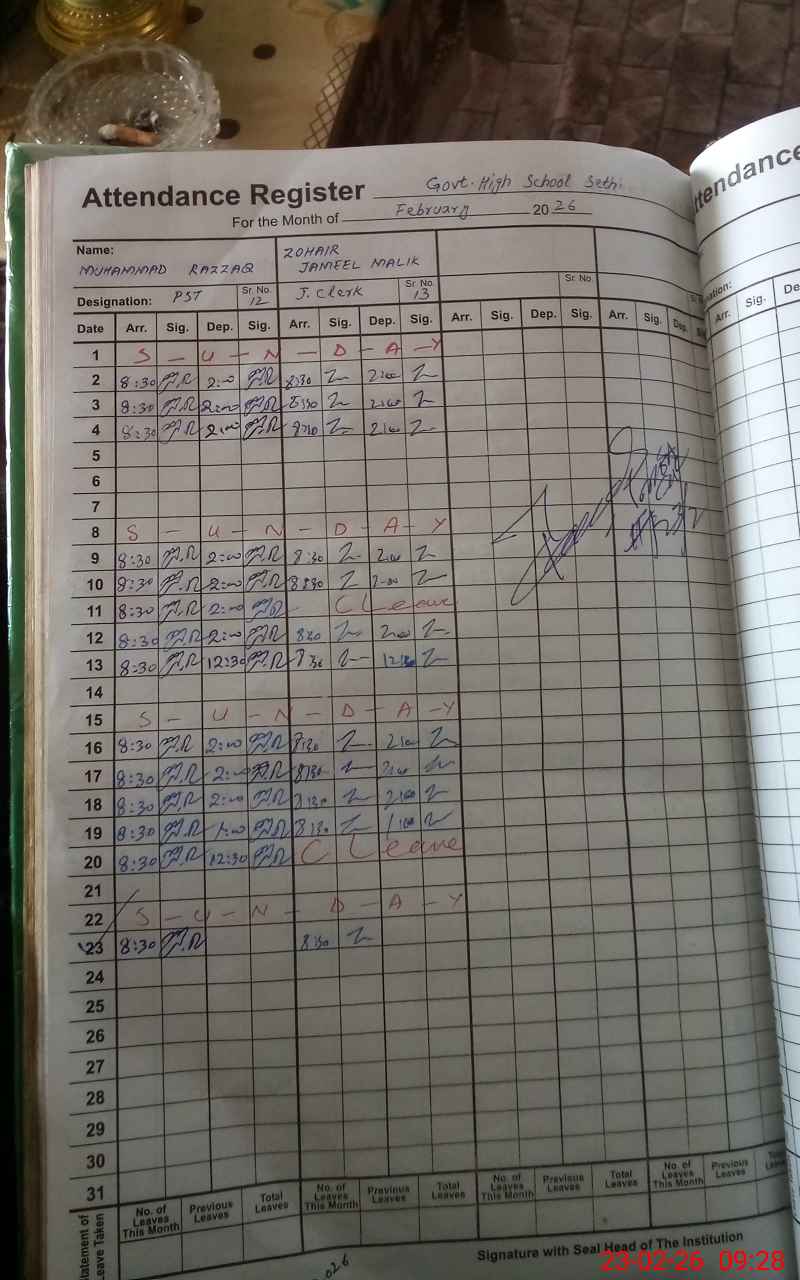 Attendance Register Govt. High School Sethi
For the Month of February 2026
Name:
MUHAMMAD RAZZAQ ZOHAIR JAMEEL MALIK
Designation: PST Sr. No. 12 J. Clerk Sr. No. 13 Sr. No.
Date Arr. Sig. Dep. Sig. Arr. Sig. Dep. Sig. Arr. Sig. Dep. Sig. Arr. Sig. Dep.
1 S - U - N - D - A - Y
2 8:30 2:00 8:30 2:00
3 8:30 2:00 8:30 2:00
4 8:30 2:00 8:30 2:00
5
6
7
8 S - U - N - D - A - Y
9 8:30 2:00 8:30 2:00
10 8:30 2:00 8:30 2:00
11 8:30 2:00 C Leave
12 8:30 2:00 8:30 2:00
13 8:30 12:30 8:30 12:30
14
15 S - U - N - D - A - Y
16 8:30 2:00 8:30 2:00
17 8:30 2:00 8:30 2:00
18 8:30 2:00 8:30 2:00
19 8:30 1:00 8:30 1:00
20 8:30 12:30 C Leave
21
22 S - U - N - D - A - Y
23 8:30 8:30
24
25
26
27
28
29
30
31
Statement of Leave Taken No. of Leaves This Month Previous Leaves Total Leaves No. of Leaves This Month Previous Leaves Total Leaves No. of Leaves This Month Previous Leaves Total Leaves No. of Leaves This Month Previous Leaves
Signature with Seal Head of The Institution
23-02-26 09:28